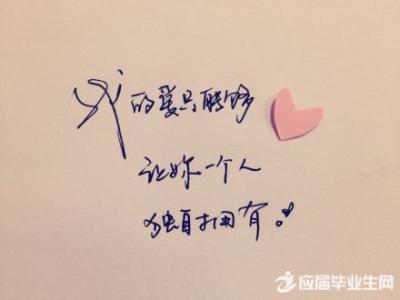 我的爱只能够
让你一个人
独自拥有!
应届毕业生网